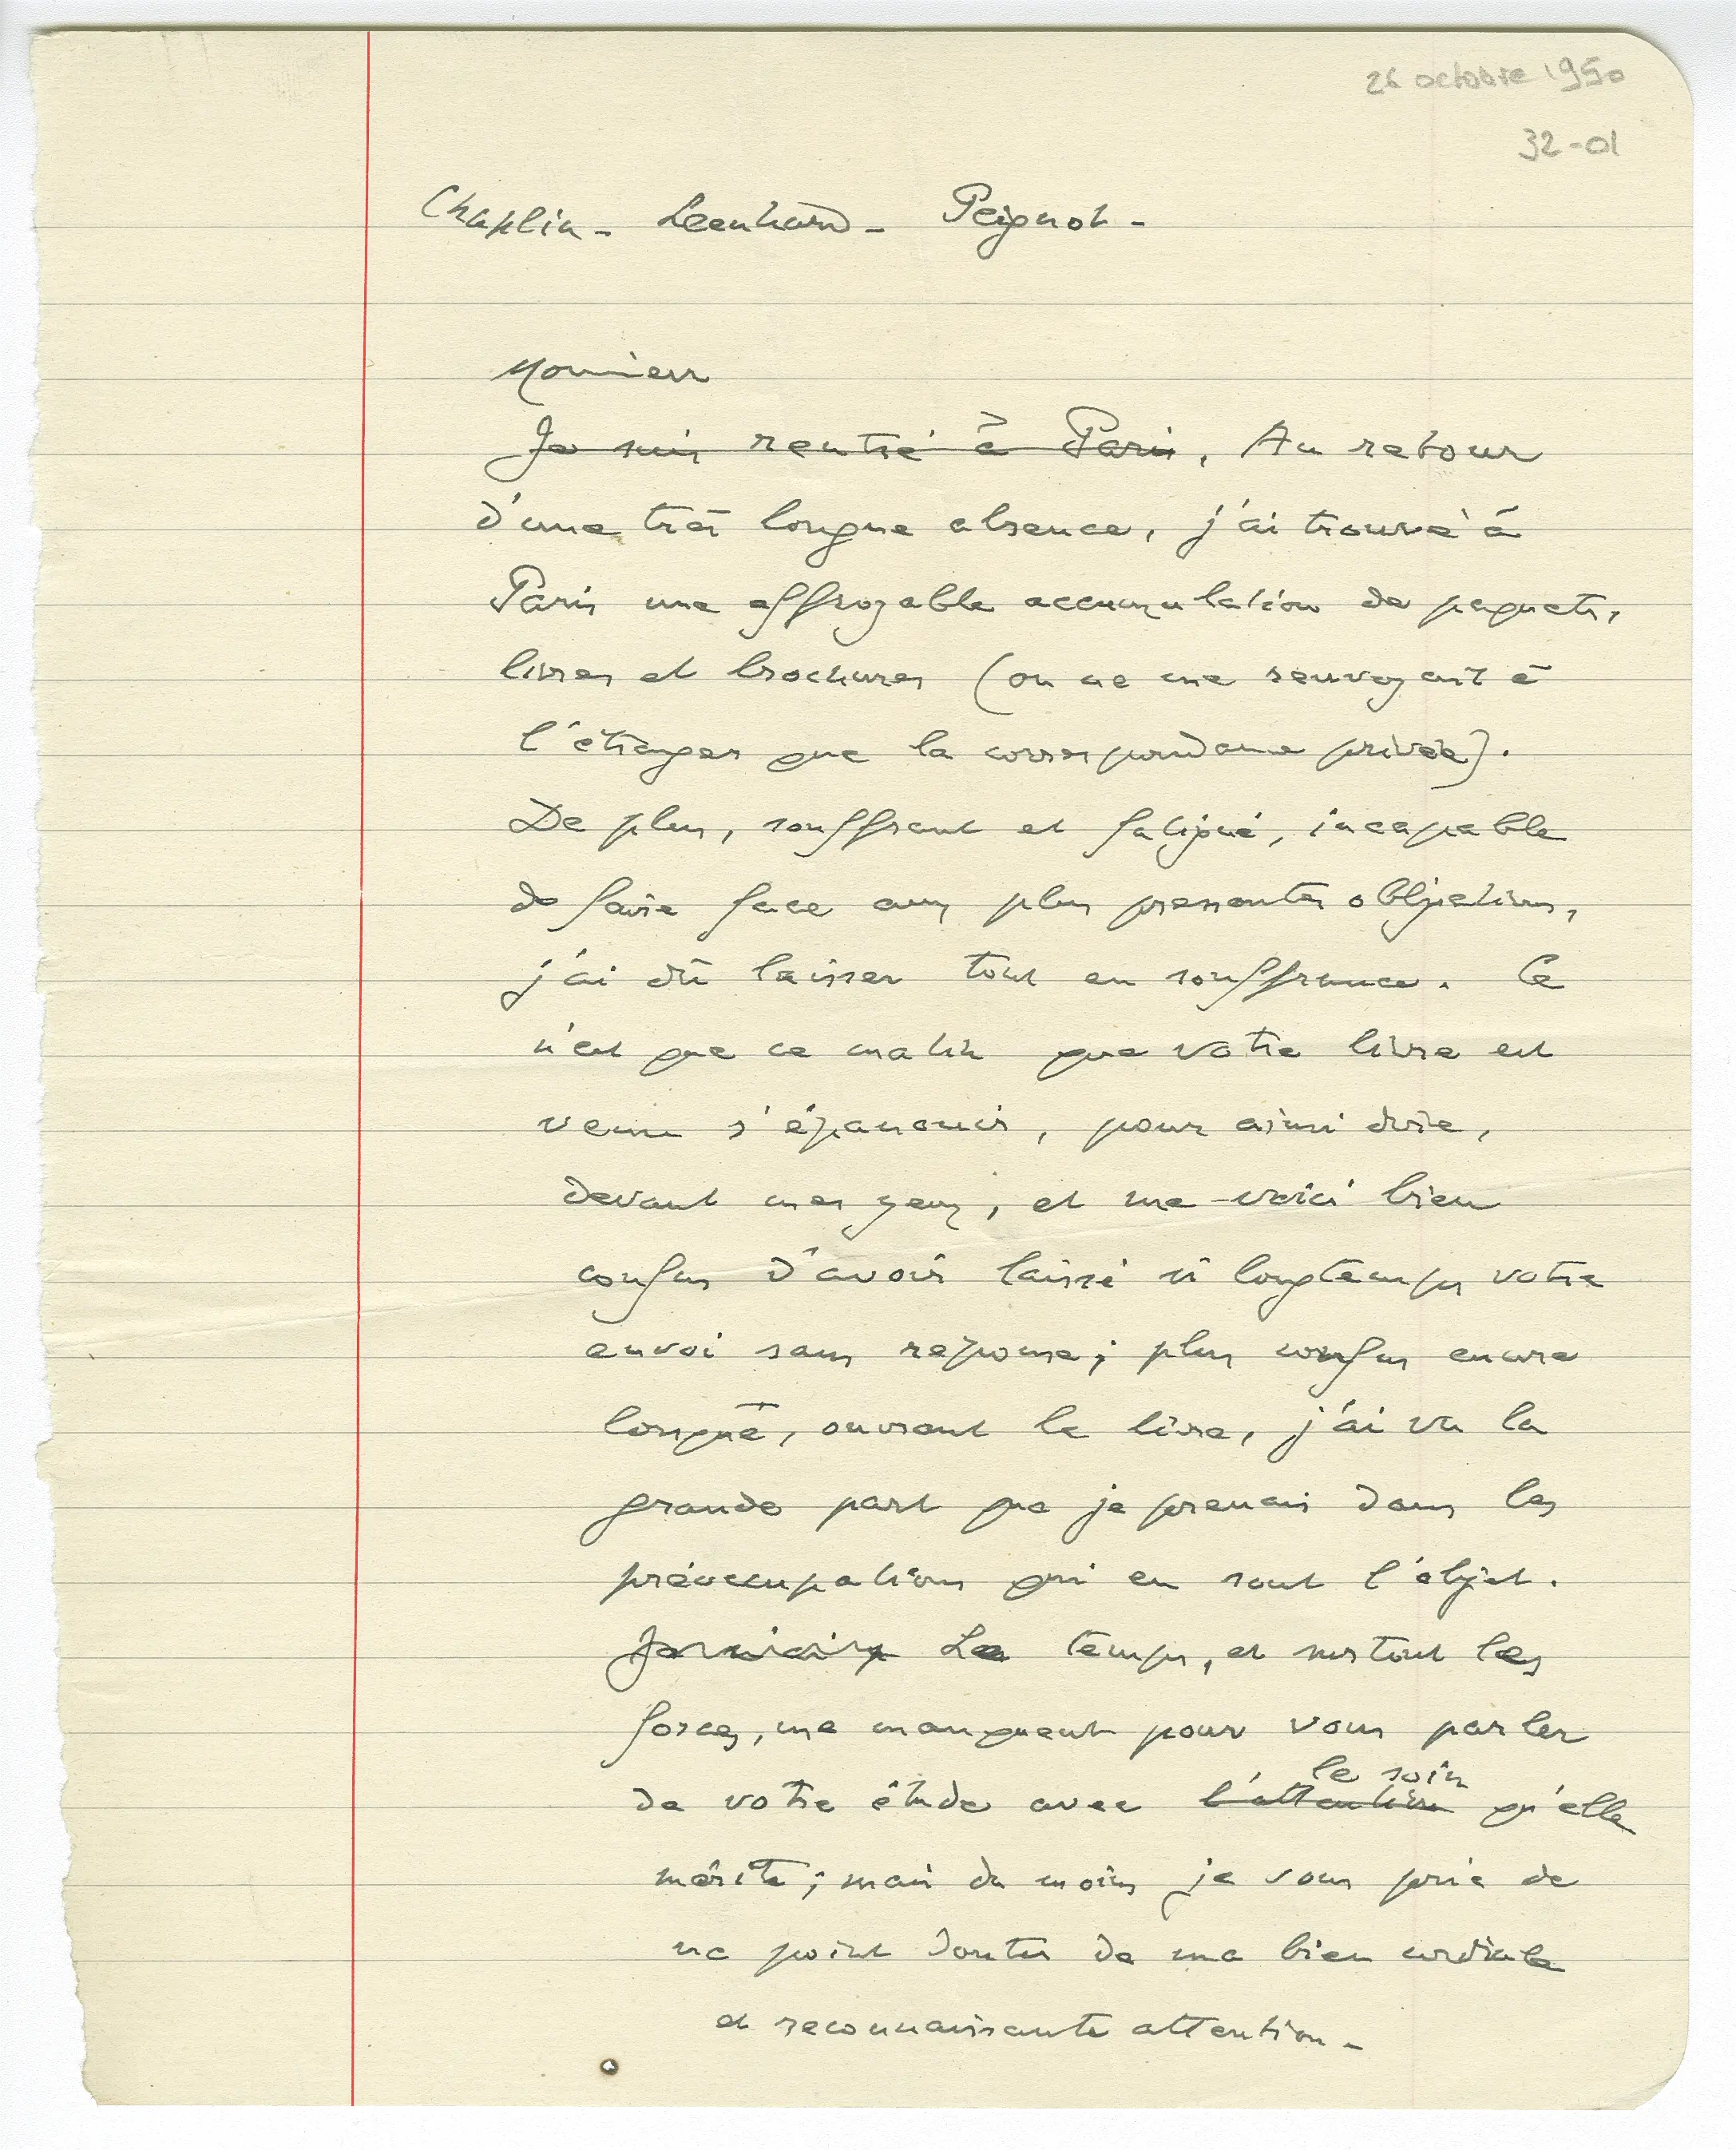 26 octobre 1950
32-01
Chaplin - Leenhard - Peignot -
Monsieur
Je suis rentré à Paris, Au retour
d'une très longue absence, j'ai trouvé à
Paris une effroyable accumulation de paquets,
livres et brochures (on ne me renvoyait à
l'étranger que la correspondance privée).
De plus, souffrant et fatigué, incapable
de faire face aux plus pressantes obligations,
j'ai dû laisser tout en souffrance. Ce
n'est que ce matin que votre livre est
venu s'épanouir, pour ainsi dire,
devant mes yeux, et me voici bien
confus d'avoir laissé si longtemps votre
envoi sans réponse; plus confus encore
lorsque, ouvrant le livre, j'ai vu la
grande part que je prenais dans les
préoccupations qui en sont l'objet.
Le temps, et surtout les
forces, me manquent pour vous parler
le soin
de votre étude avec l'attention qu'elle
mérite; mais du moins je vous prie de
ne point douter de ma bien cordiale
et reconnaissante attention -